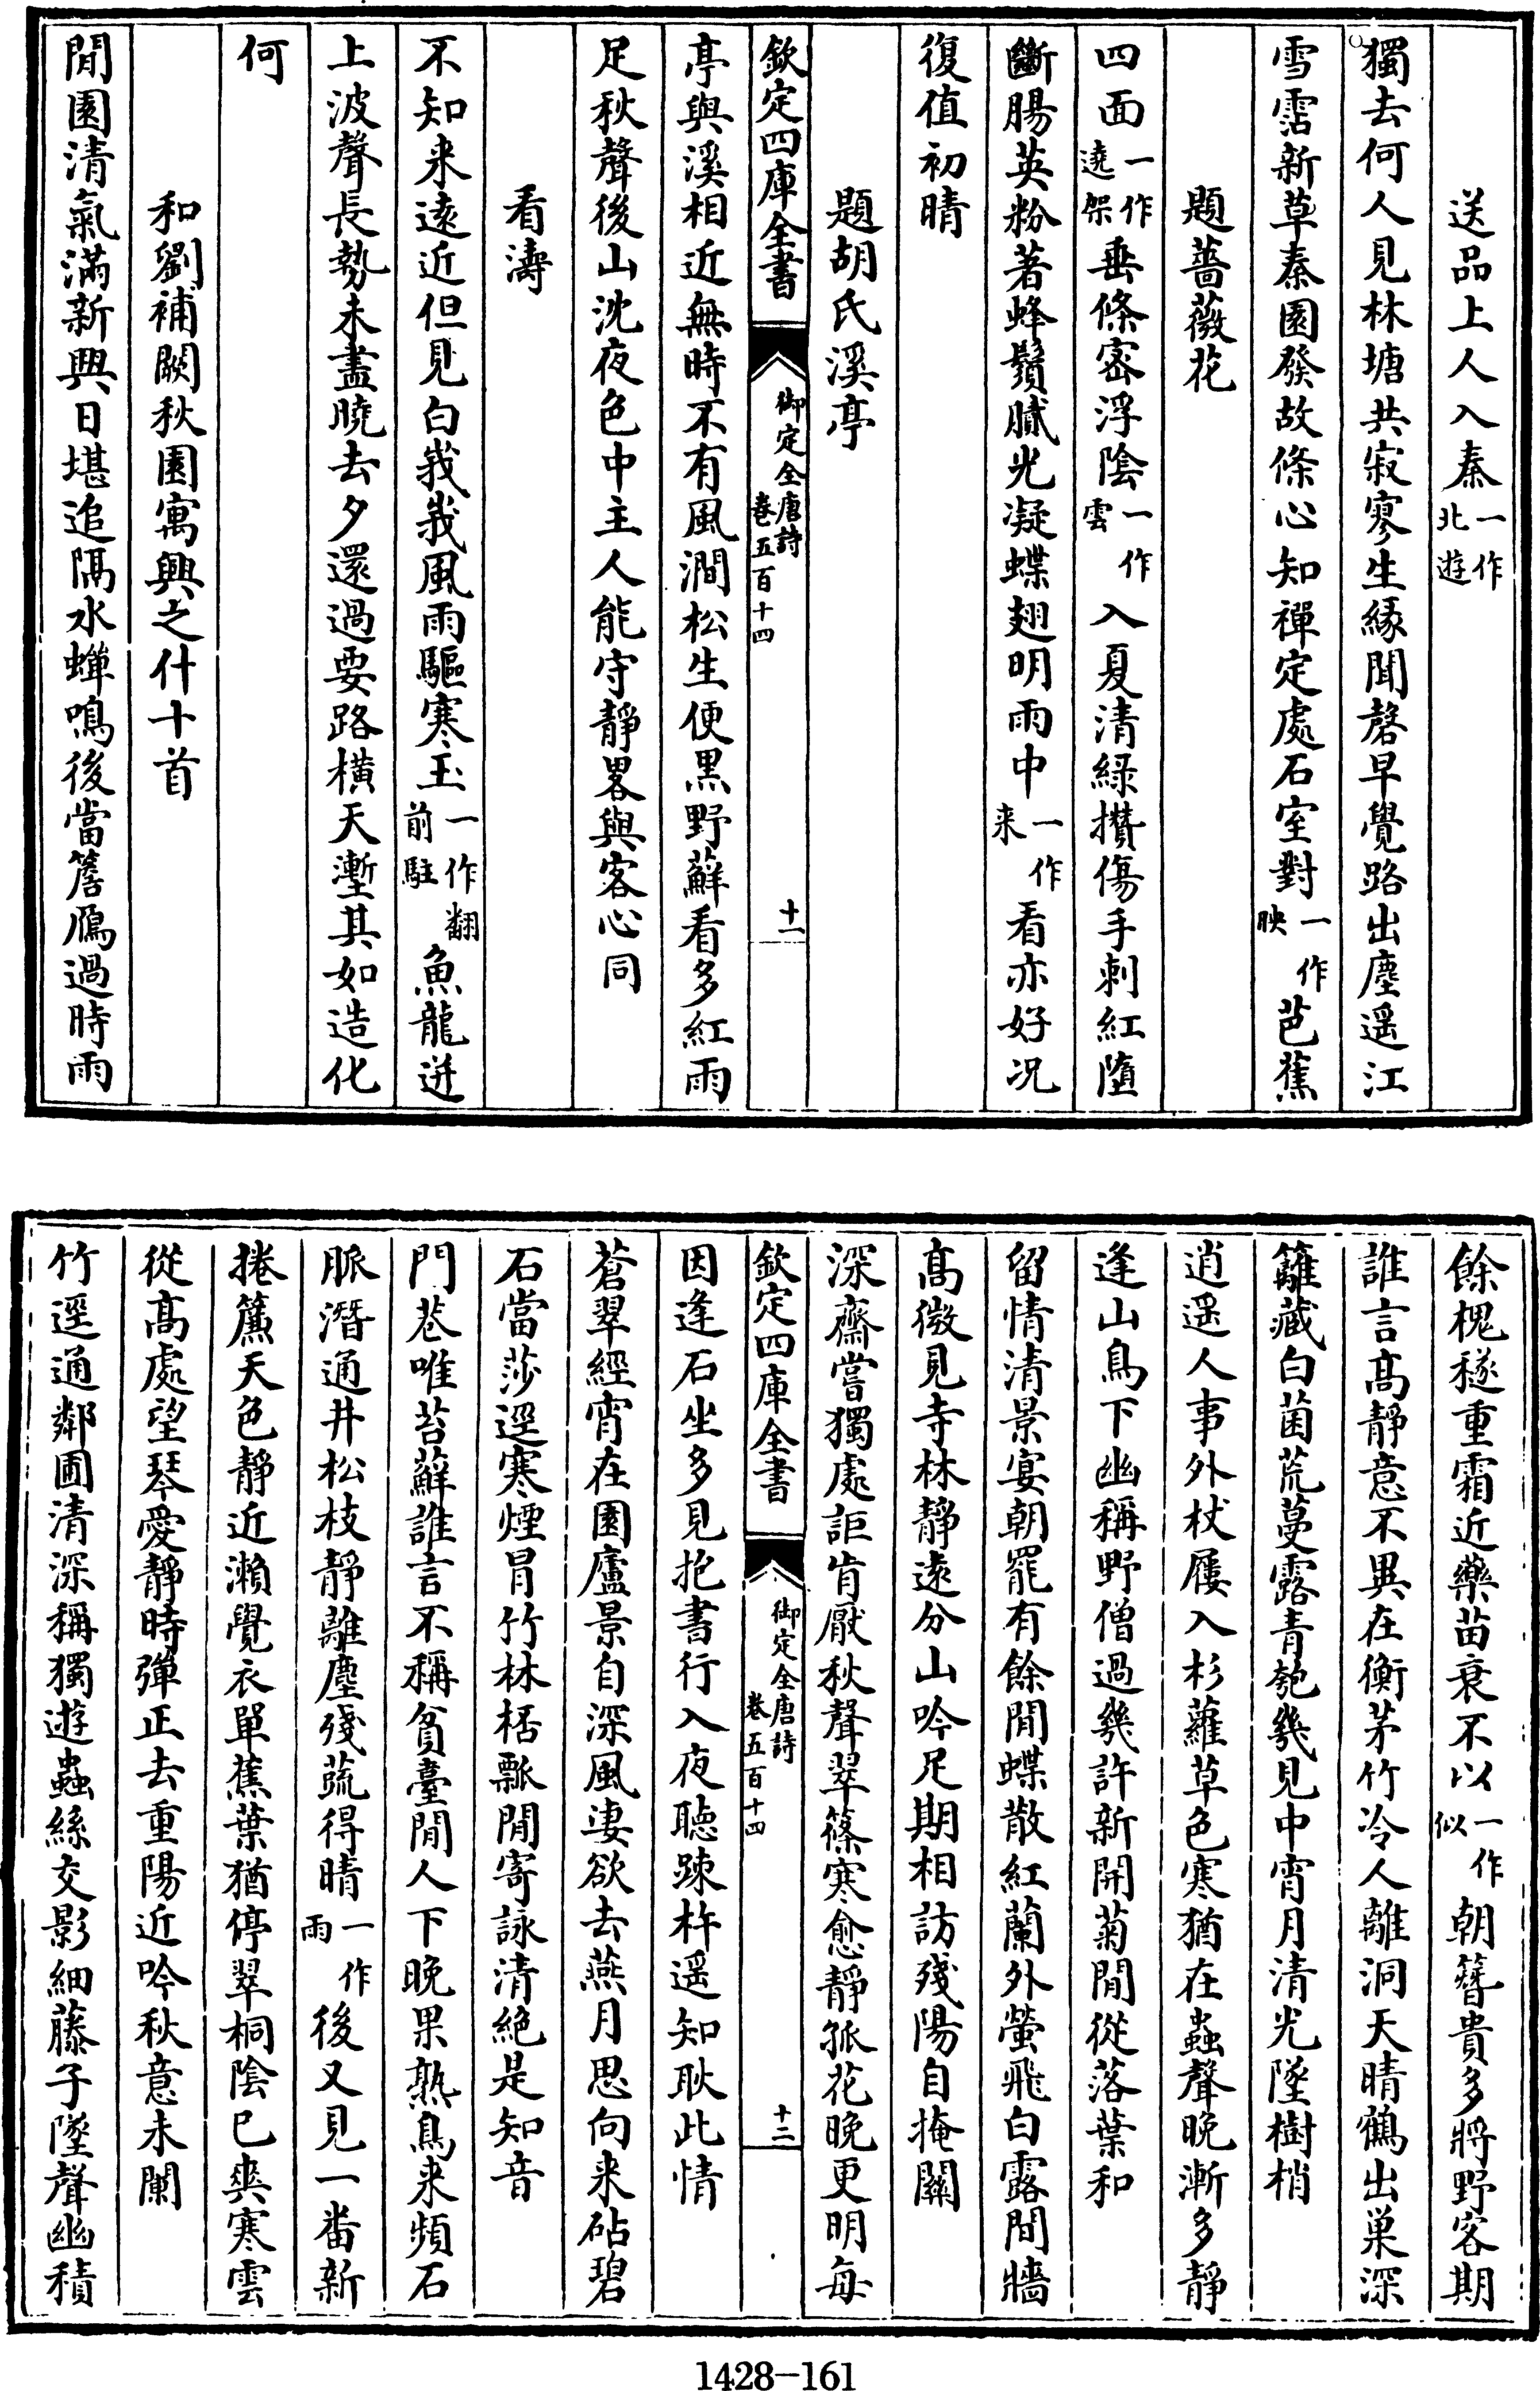 送品上人入秦一作北遊
獨去何人見林塘共寂寥生緣聞磬早覺路出塵遥江
雪霑新草秦園發故條心知禪定處石室對一作映芭蕉
題薔薇花
四面一作遶架垂條密浮陰一作雲入夏清綠攢傷手刺紅墮
斷腸英粉著蜂鬚膩光凝蝶翅明雨中一作来看亦好况
復值初晴
題胡氏溪亭
欽定四庫全書
御定全唐詩
卷五百十四
十一
亭與溪相近無時不有風澗松生便黒野蘚看多紅雨
足秋聲後山沈夜色中主人能守靜畧與客心同
看濤
不知来遠近但見白峩峩風雨驅寒玉一作翻前駐魚龍迸
上波聲長勢未盡曉去夕還過要路橫天塹其如造化
何
和劉補闕秋園寓興之什十首
閒園清氣滿新興日堪追隔水蟬鳴後當簷鴈過時雨
餘槐穟重霜近藥苗衰不以一作似朝簪貴多將野客期
誰言髙靜意不異在衡茅竹冷人離洞天晴鶴出巢深
籬藏白菌荒蔓露青匏幾見中宵月清光墜樹梢
逍遥人事外杖屨入杉蘿草色寒猶在蟲聲晚漸多靜
逢山鳥下幽稱野僧過幾許新開菊閒從落葉和
留情清景宴朝罷有餘閒蝶散紅蘭外螢飛白露間牆
髙微見寺林靜遠分山吟足期相訪殘陽自掩關
深齋嘗獨處詎肯厭秋聲翠篠寒愈靜孤花晚更明每
欽定四庫全書
御定全唐詩
卷五百十四
十二
因逢石坐多見抱書行入夜聽踈杵遥知耿此情
蒼翠經宵在園廬景自深風凄欲去燕月思向来砧碧
石當莎逕寒煙冒竹林栝瓢閒寄詠清絶是知音
門巷唯苔蘚誰言不稱貧臺閒人下晚果熟鳥来頻石
脈潛通井松枝靜離塵殘蔬得晴一作雨後又見一番新
捲簾天色靜近瀨覺衣單蕉葉猶停翠桐陰已爽寒雲
從髙處望琴愛靜時彈正去重陽近吟秋意未闌
竹逕通鄰圃清深稱獨遊蟲絲交影細藤子墜聲幽積
1428-161